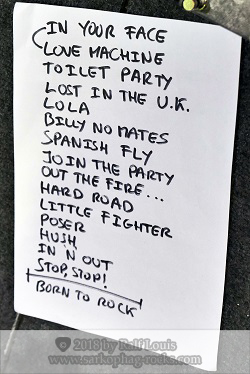 IN YOUR FACE
LOVE MACHINE
TOILET PARTY
LOST IN THE U.K.
LOLA
BILLY NO MATES
SPANISH FLY
JOIN THE PARTY
OUT THE FIRE...
HARD ROAD
LITTLE FIGHTER
POSER
HUSH
IN N OUT
STOP, STOP!
BORN TO ROCK
© 2018 by Ralf Louis
www.sarkophag-rocks.com